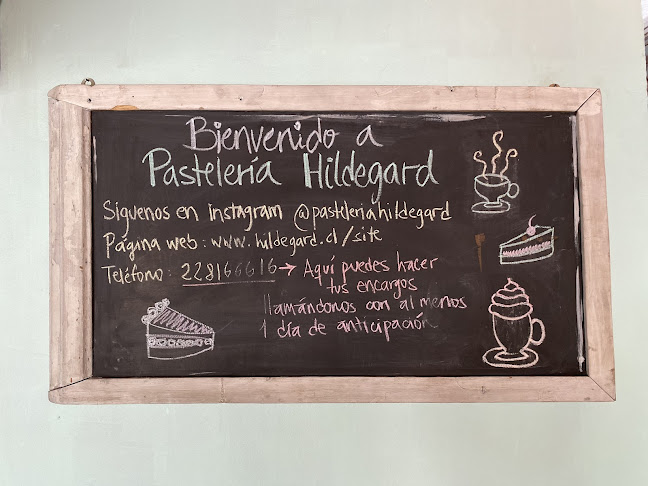 Bienvenido a
Pastelería Hildegard
Síguenos en instagram @pasteleriahildegard
Página web: www.hildegard.cl/site
Teléfono: 228166616 → Aquí puedes hacer
tus encargos
llamándonos con al menos
1 día de anticipación